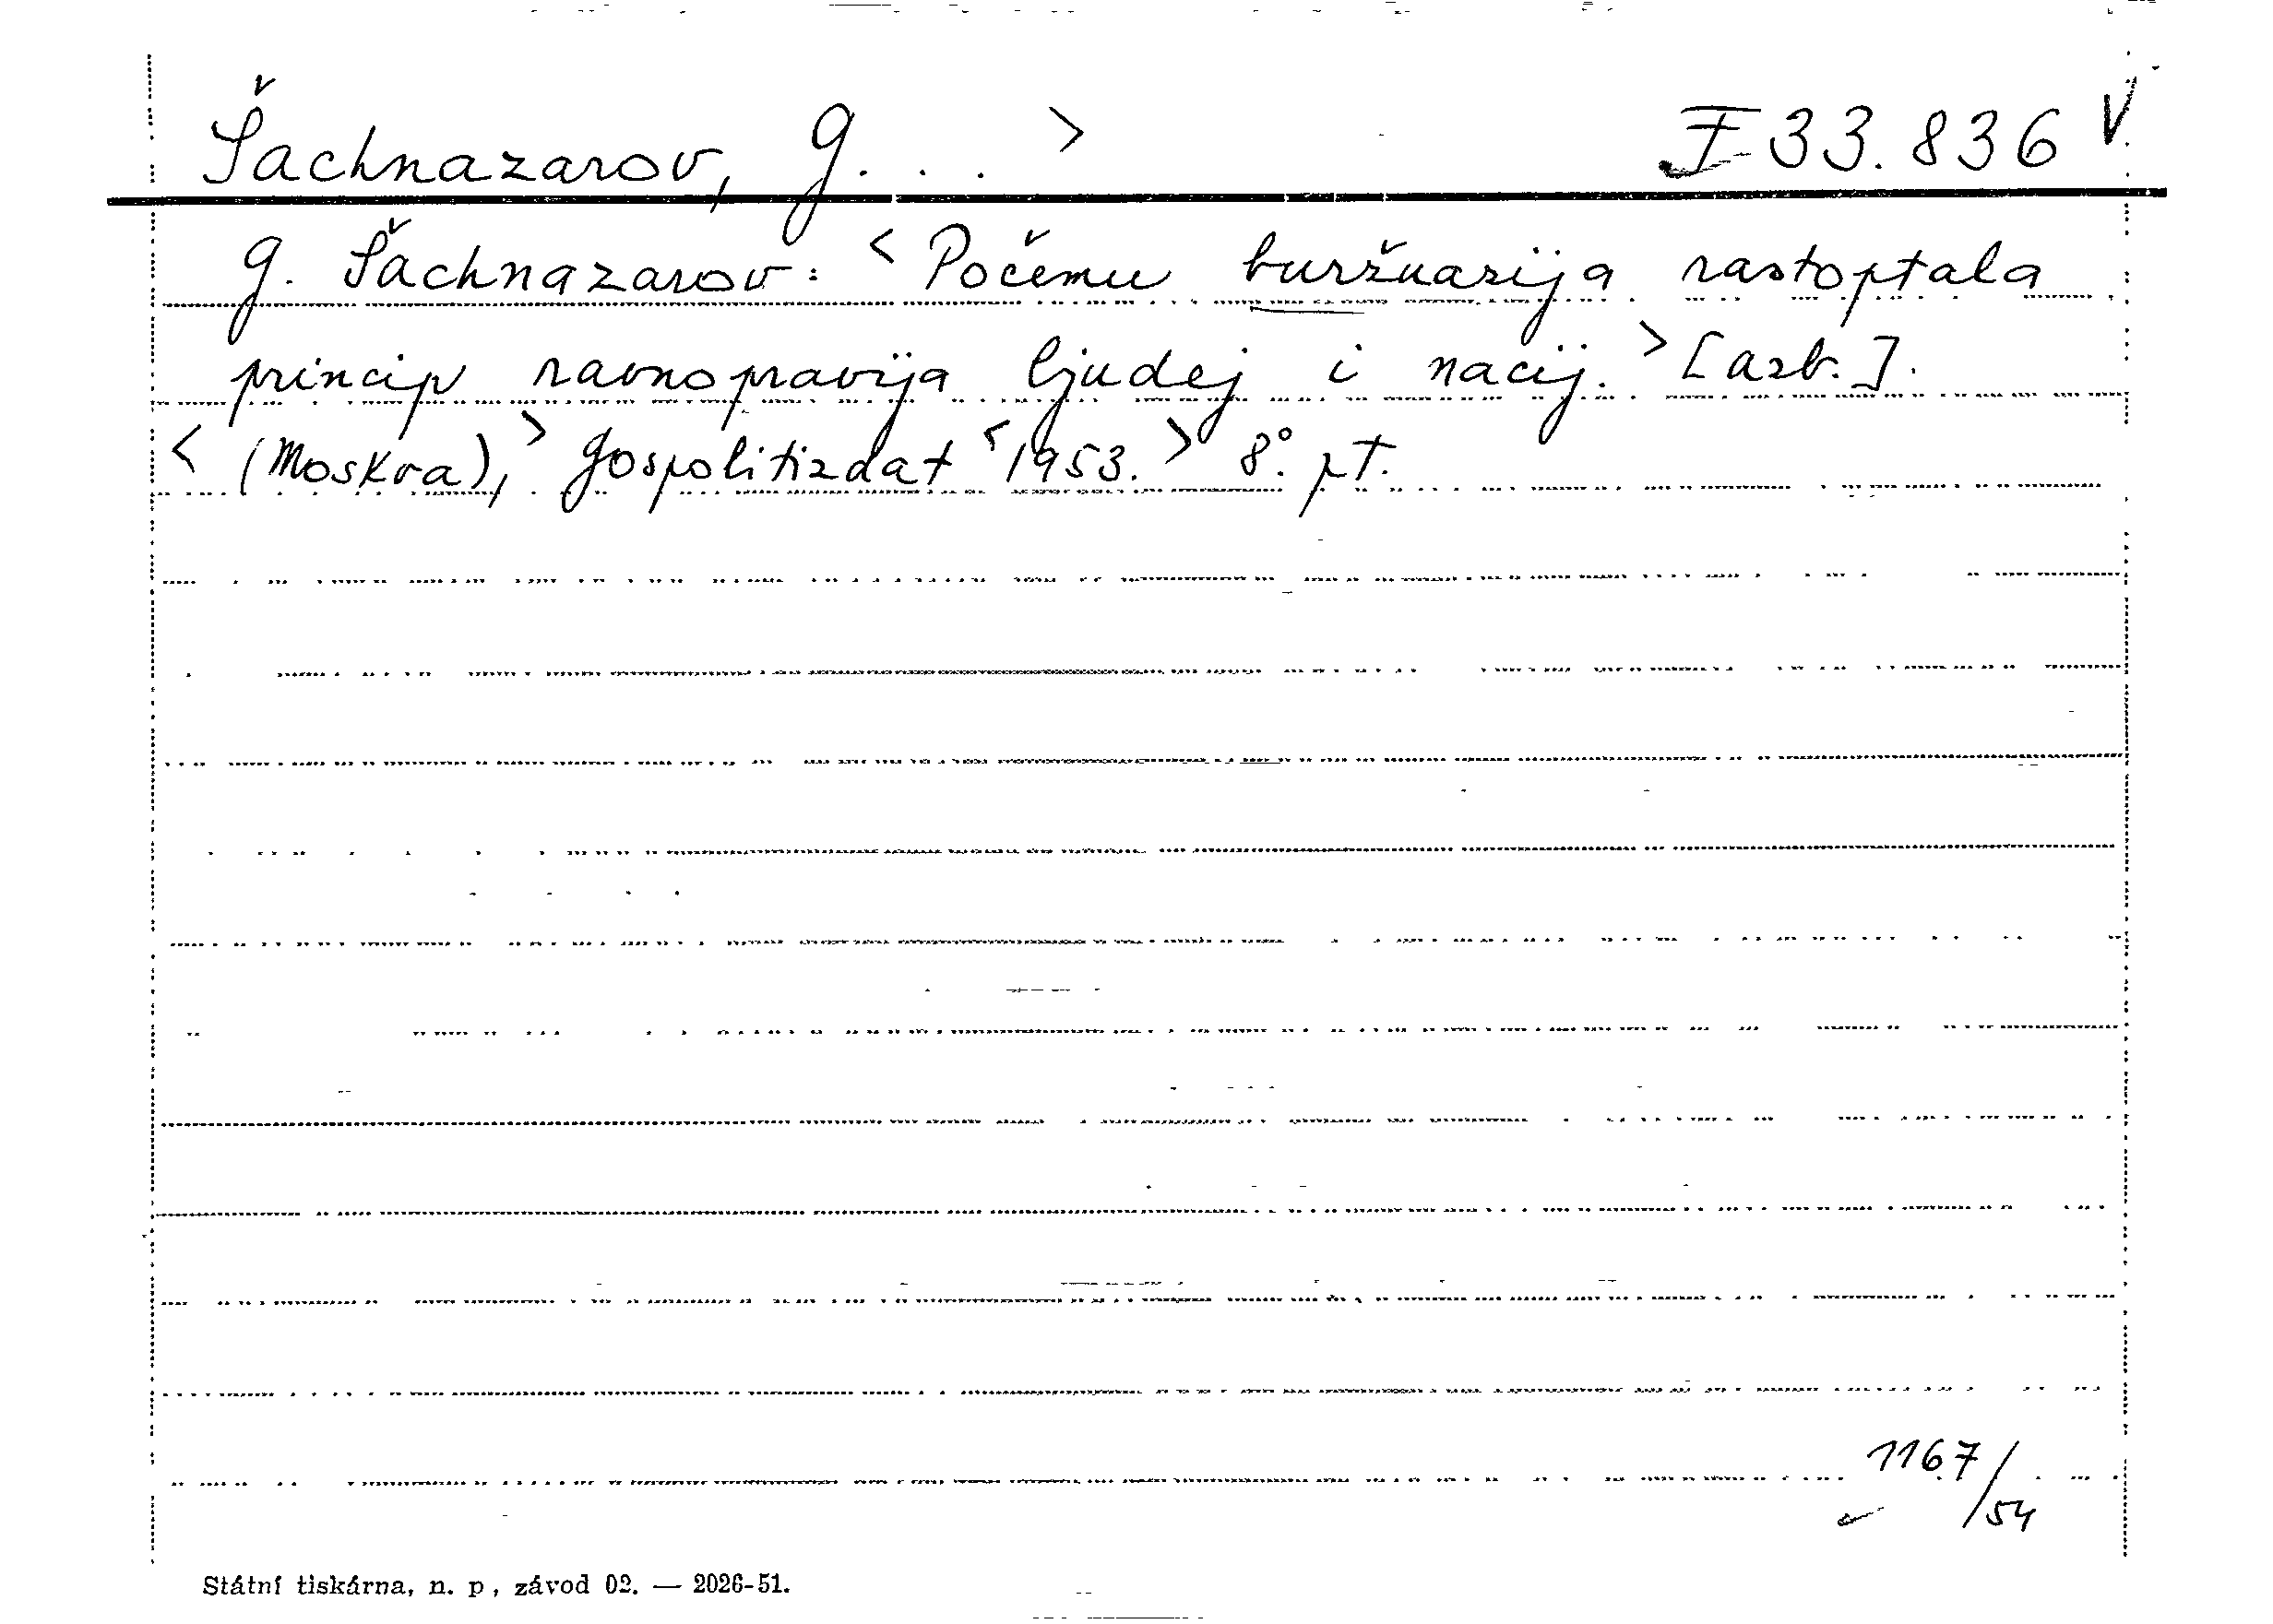 Šachnazarov, G. . . >
F 33.836 V.
G. Šachnazarov: < Počemu buržuazija rastoptala
princip ravnopravija ljudej i nacij. > [azb.].
< (Moskva), > Gospolitizdat < 1953. > 8°. pt.
1167/54
Státní tiskárna, n. p., závod 02. — 2026-51.